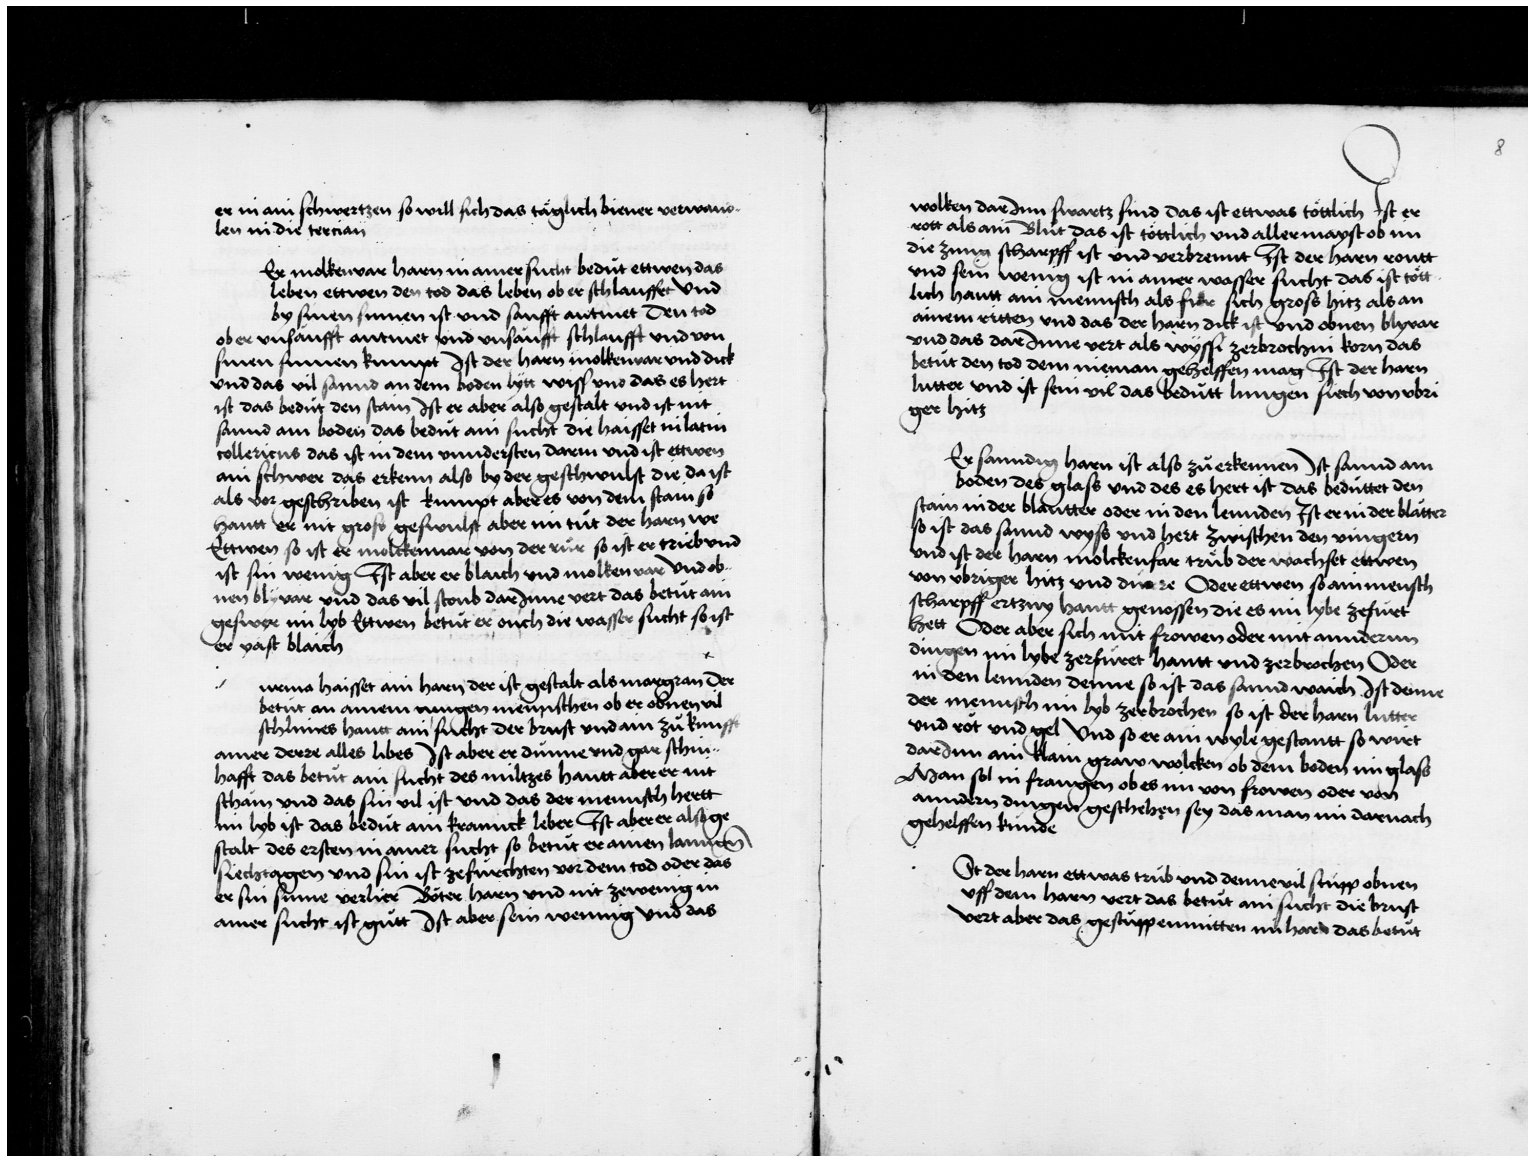 er in ain schwertzen so will sich das täglich biener verwand-
len in die tercian
Er molkenvar harn in ainer sucht bedüt ettwen das
leben ettwen den tod das leben ob er schlauffet Und
by sinen sinnen ist und sanfft autmet Den tod
ob er unsaufft autmet und unsäufft schlaufft und von
sinen sinnen kumpt Ist der harn molkenvar und dick
und das vil sannd an dem boden lytt wiss und das es hert
ist das bedüt den stain Ist er aber also gestalt und ist nit
sannd am boden das bedüt ain sucht die haisset in latin
collericus das ist in dem unndersten darm und ist ettwen
ain schwer das erkenn also by der geschwulst die da ist
als vor geschriben ist kumpt aber es von dem stain so
hautt er nit gross geswulst aber im tüt der harn we
Ettwen so ist er molckenvar von der rür so ist er trieb und
ist sin wenig Ist aber er blaich und molkenvar Und ob-
nen blyvar und das vil stoub dar Inne vert das betüt ain
geswer im lyb Ettwen betüt er ouch die wasser sucht so ist
er vast blaich
urina haisset ain harn der ist gestalt als margran Der
betüt an ainem mennschen ob er obnen vil
schlimes hautt ain sucht der brust und ain zü kunfft
ainer derre alles libes Ist aber er dünne und gar schin-
hafft das betüt ain sucht des miltzes hautt aber er nit
schain und das sin vil ist und das der mennsch hertt
im lyb ist das bedüt ain kranck leber Ist aber er also ge
stalt des ersten in ainer sucht so betüt er ainen lanngen
siechtagen und sin ist zefürchten vor dem tod oder das
er sin sinne verlier Röter harn und nit zewenig in
ainer sucht ist gütt Ist aber sein wennig Und das
8
wolken dar Inn swartz sind das ist ettwas töttlich Ist er
rott als ain Blüt das ist töttlich und aller mayst ob im
die zung scharpff ist und verbrennt Ist der harn routt
und sein wenig ist in ainer wasser sucht das ist tött
lich hautt ain mennsch als für sich gross hitz als an
ainem ritten und das der harn dick ist und obnen blyvar
und das dar Inne vert als wyssi zerbrochni korn das
betüt den tod dem nieman gehelffen mag Ist der harn
lutter und ist sein vil das bedütt lungen siech von ubri
ger hitz
Er sanndig harn ist also zü erkennen Ist sannd am
boden des glass und des es hert ist das bedüttet den
stain in der blautter oder in den lennden Ist er in der blatter
so ist das sannd wyss und hert zwischen den vingern
und ist der harn molckenfar trüb der wachset ettwen
von ubriger hitz und Oder ettwen so ain mensch
scharpff ertzny hautt genossen die es im lybe zefürt
hett Oder aber sich mit frowen oder mit anndernn
dingen im lybe zerfüret hautt und zerbrochen Oder
in den lennden denne so ist das sannd waich Ist denne
der mennsch im lyb zerbrochen so ist der harn lutter
und rot und gel Und so er ain wyle gestautt so wirt
dar Inn ain klain graw wolcken ob dem boden im glass
Man sol in fraugen ob es im von frowen oder von
anndern dingen geschehen sey das man im darnach
gehelffen kunde
Ist der harn ettwas trüb und denne vil stupp obnen
uff dem harn vert das betüt ain sucht die brust
Vert aber das gestupp enmitten im harn das betüt